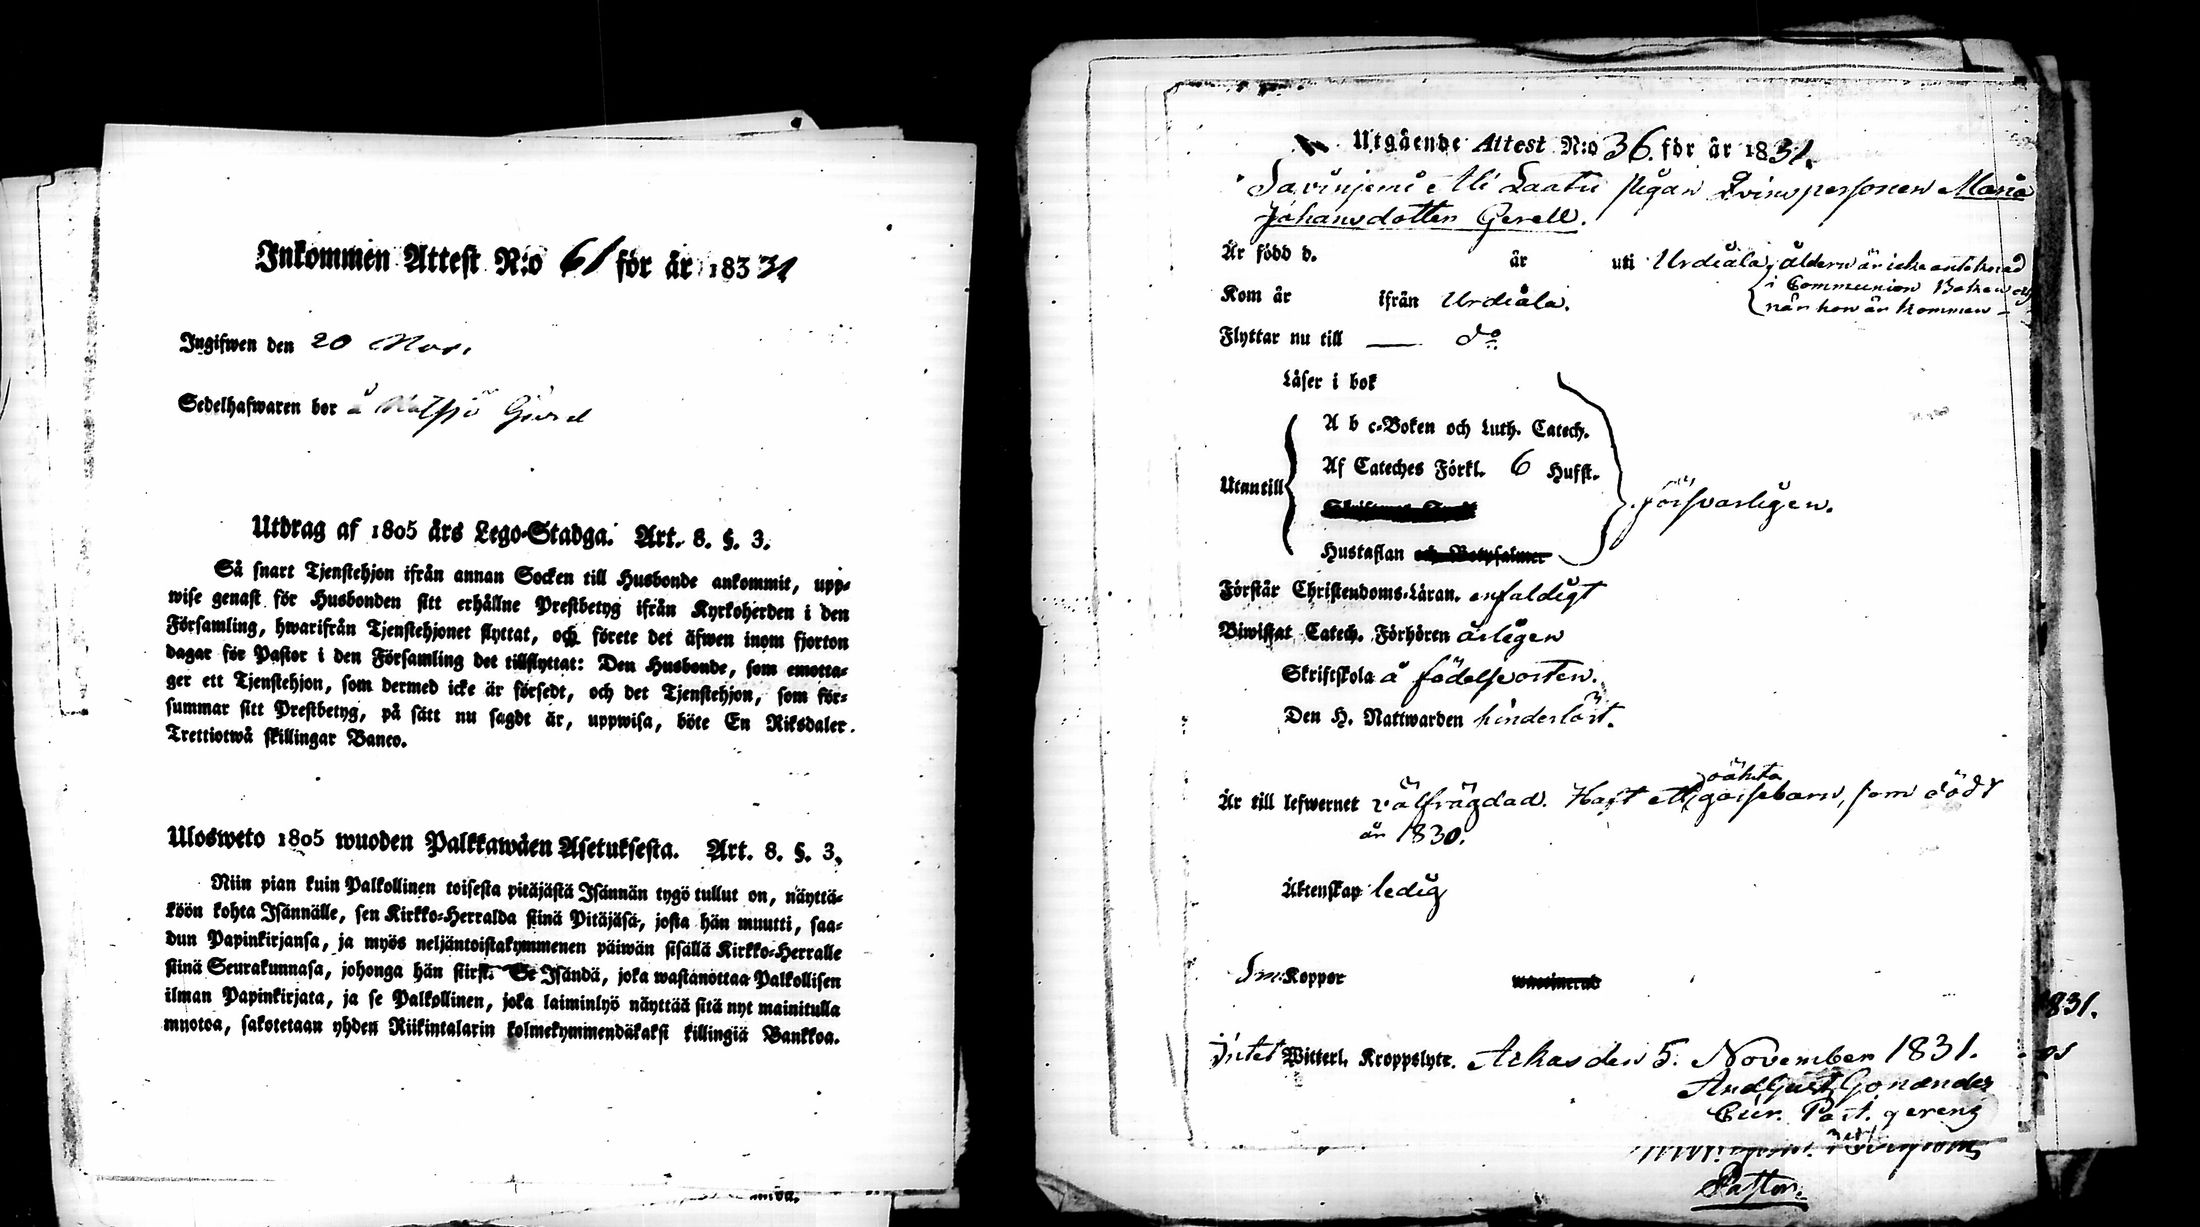 Inkommen Attest N:o 61 för år 183 31
Ingifwen den 20 Nov.
Sedelhafwaren bor å Nutsjö Gård
Utdrag af 1805 års Lego-Stadga. Art. 8. §. 3.
Så snart Tjenstehjon ifrån annan Socken till Husbonde ankommit, upp-
wise genast för Husbonden sitt erhållne Prestbetyg ifrån Kyrkoherden i den
Församling, hwarifrån Tjenstehjonet flyttat, och förete det äfwen inom fjorton
dagar för Pastor i den Församling det tillflyttat: Den Husbonde, som emotta-
ger ett Tjenstehjon, som dermed icke är försedt, och det Tjenstehjon, som för-
summar sitt Prestbetyg, på sätt nu sagdt är, uppwisa, böte En Riksdaler
Trettiotwå skillingar Banco.
Ulosweto 1805 wuoden Palkkawäen Asetuksesta. Art. 8. §. 3.
Niin pian kuin Palkollinen toisesta pitäjästä Isännän tygö tullut on, näyttä-
köön kohta Isännälle, sen Kirkko-Herralda siinä Pitäjäsä, josta hän muutti, saa-
dun Papinkirjansa, ja myös neljäntoistakymmenen päiwän sisällä Kirkko-Herralle
siinä Seurakunnasa, johonga hän siirsi. Se Isändä, joka wastanottaa Palkollisen
ilman Papinkirjata, ja se Palkollinen, joka laiminlyö näyttää sitä nyt mainitulla
muotoa, sakotetaan yhden Riikintalarin kolmekymmendäkaksi killingiä Bankkoa.
Utgående Attest N:o 36. för år 1831.
Savinjemi Ali Laatu pigan Qvinspersonen Maria
Johansdotter Gerell.
Är född d. år uti Urdiala, åldern är icke anteknad
i Communion Boken ej
Kom år ifrån Urdiala. när hon är kommen
Flyttar nu till — do
Läser i bok
A b c-Boken och Luth. Catech.
Af Cateches Förkl. 6 Hufst.
Utantill försvarligen.
Hustaflan och Botpsalmer
Förstår Christendoms-Läran. enfaldigt
Biwistat Catech. Förhören årligen
Skriftskola å födelseorten.
Den H. Nattwarden hinderlöst.
Är till lefwernet välfrägdad. Haft ett oäkta gossebarn, som dödt
år 1830.
Äktenskap ledig
Koppor waccinerad
Intet Witterl. Kroppslyte. Ackas den 5. November 1831.
And Gust Gonander
Cur. Past. gereng
Pastor.
1831.